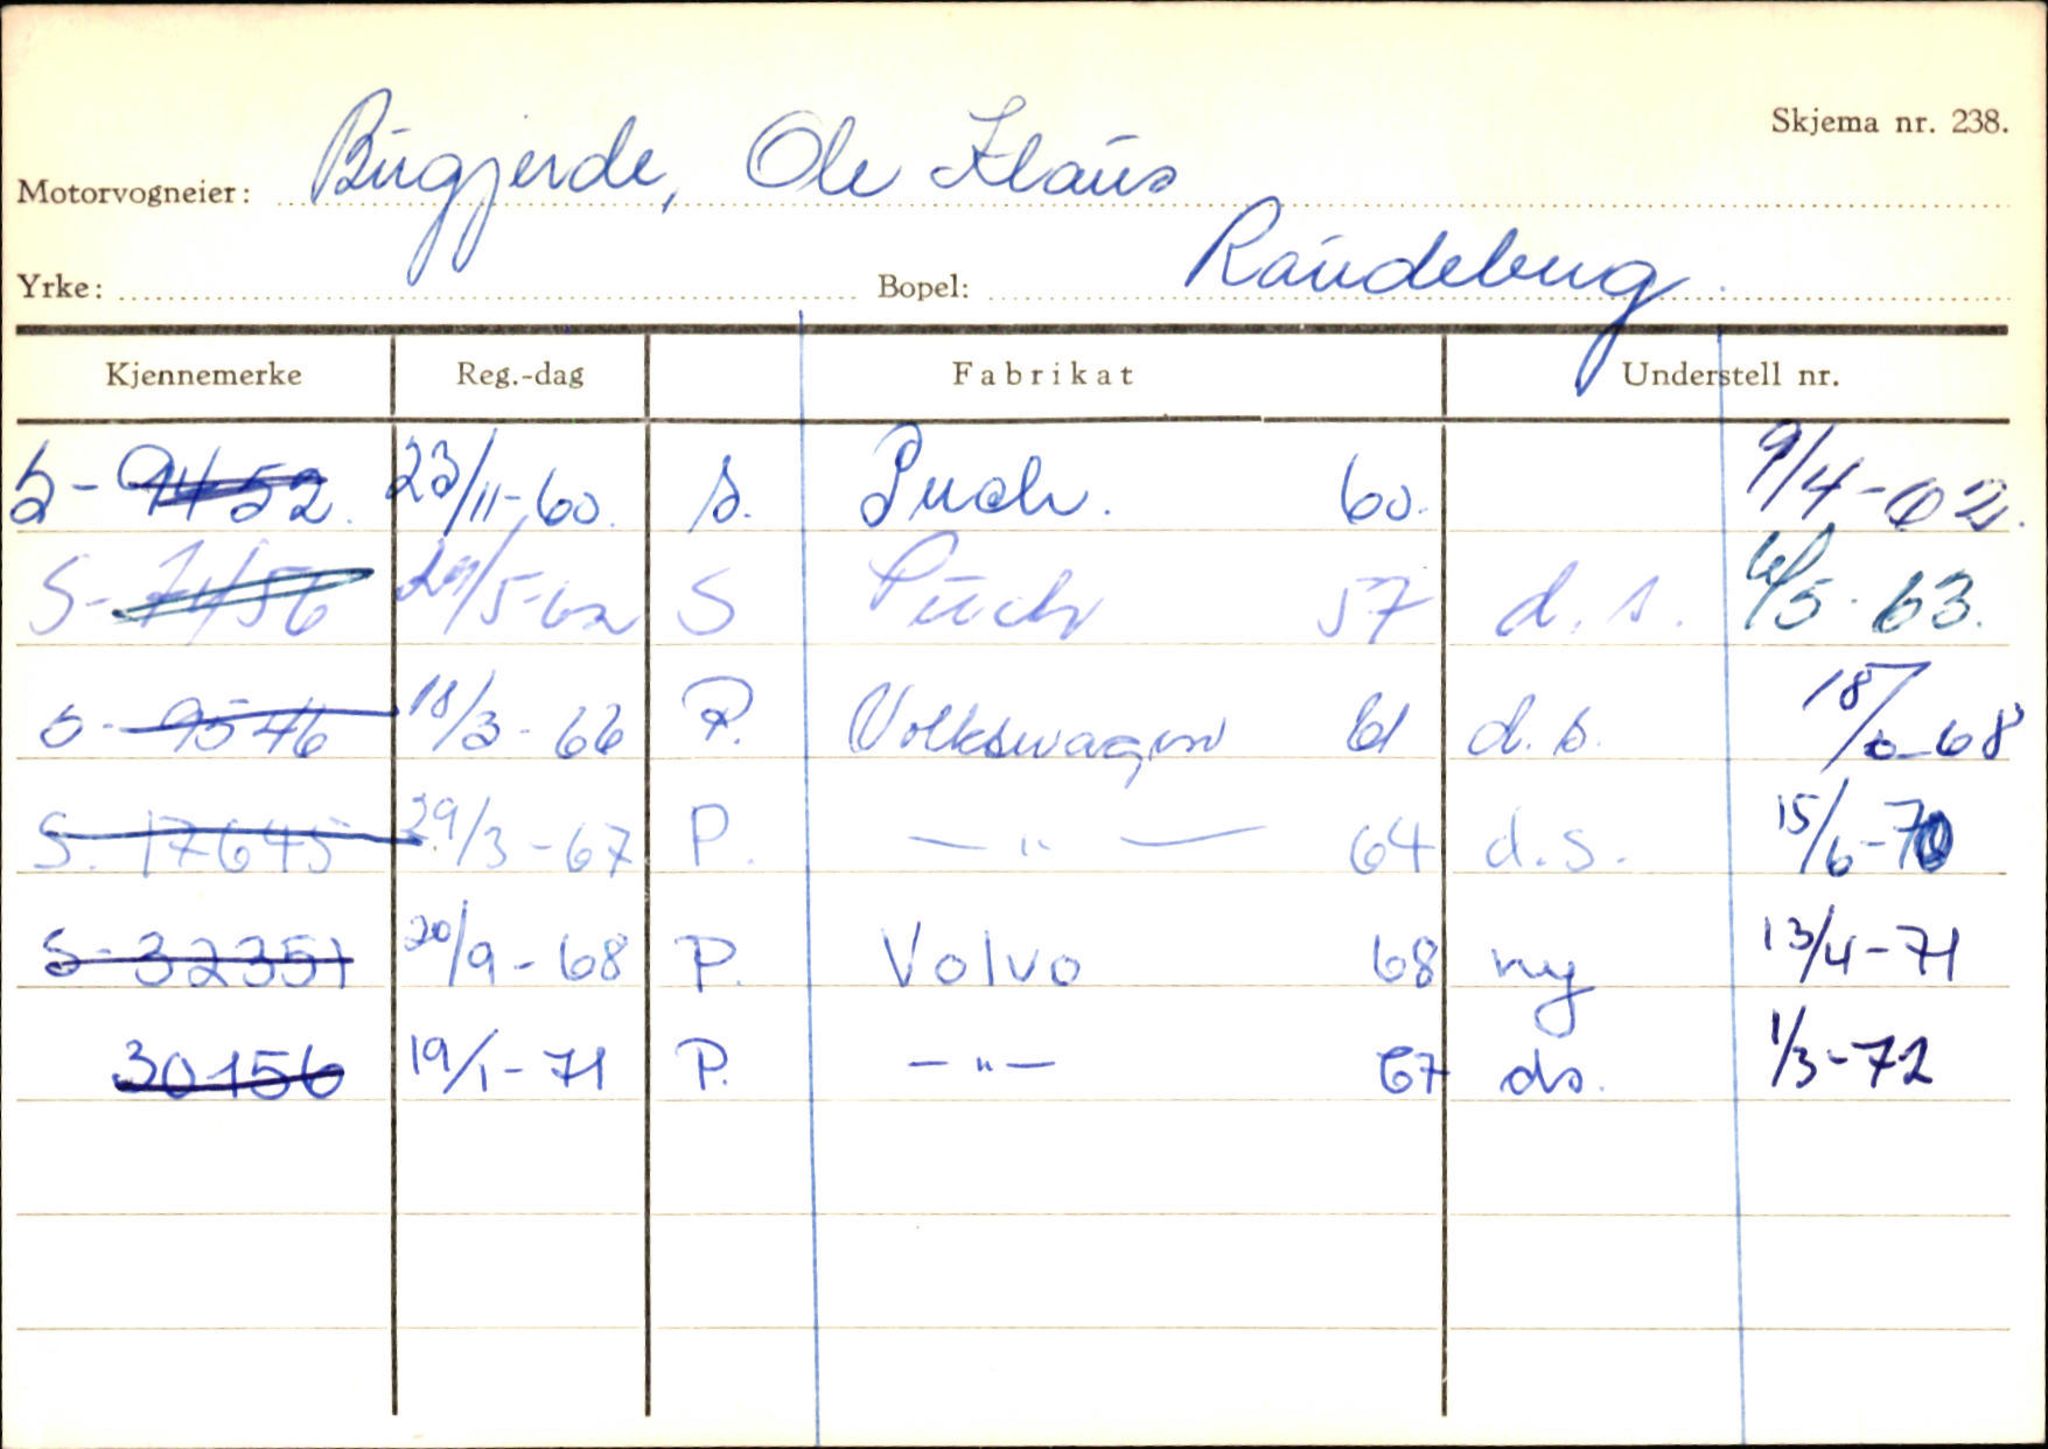 Skjema nr. 238.
Motorvogneier: Bugjerde, Ole Klaus
Yrke: Bopel: Raudeberg
Kjennemerke Reg.-dag Fabrikat Understell nr.
S-9452. 23/11-60. s. Puch. 60. 9/4-62.
S-7456 29/5-62 S Puch 57 d.s. 6/5-63.
S-9546 18/3-66 P. Volkswagen 61 d.s. 18/6-68
S. 17645 29/3-67 P. — " — 64 d.s. 15/6-70
S-32351 20/9-68 P. Volvo 68 ny 13/4-71
30156 19/1-71 P. — " — 67 ds. 1/3-72